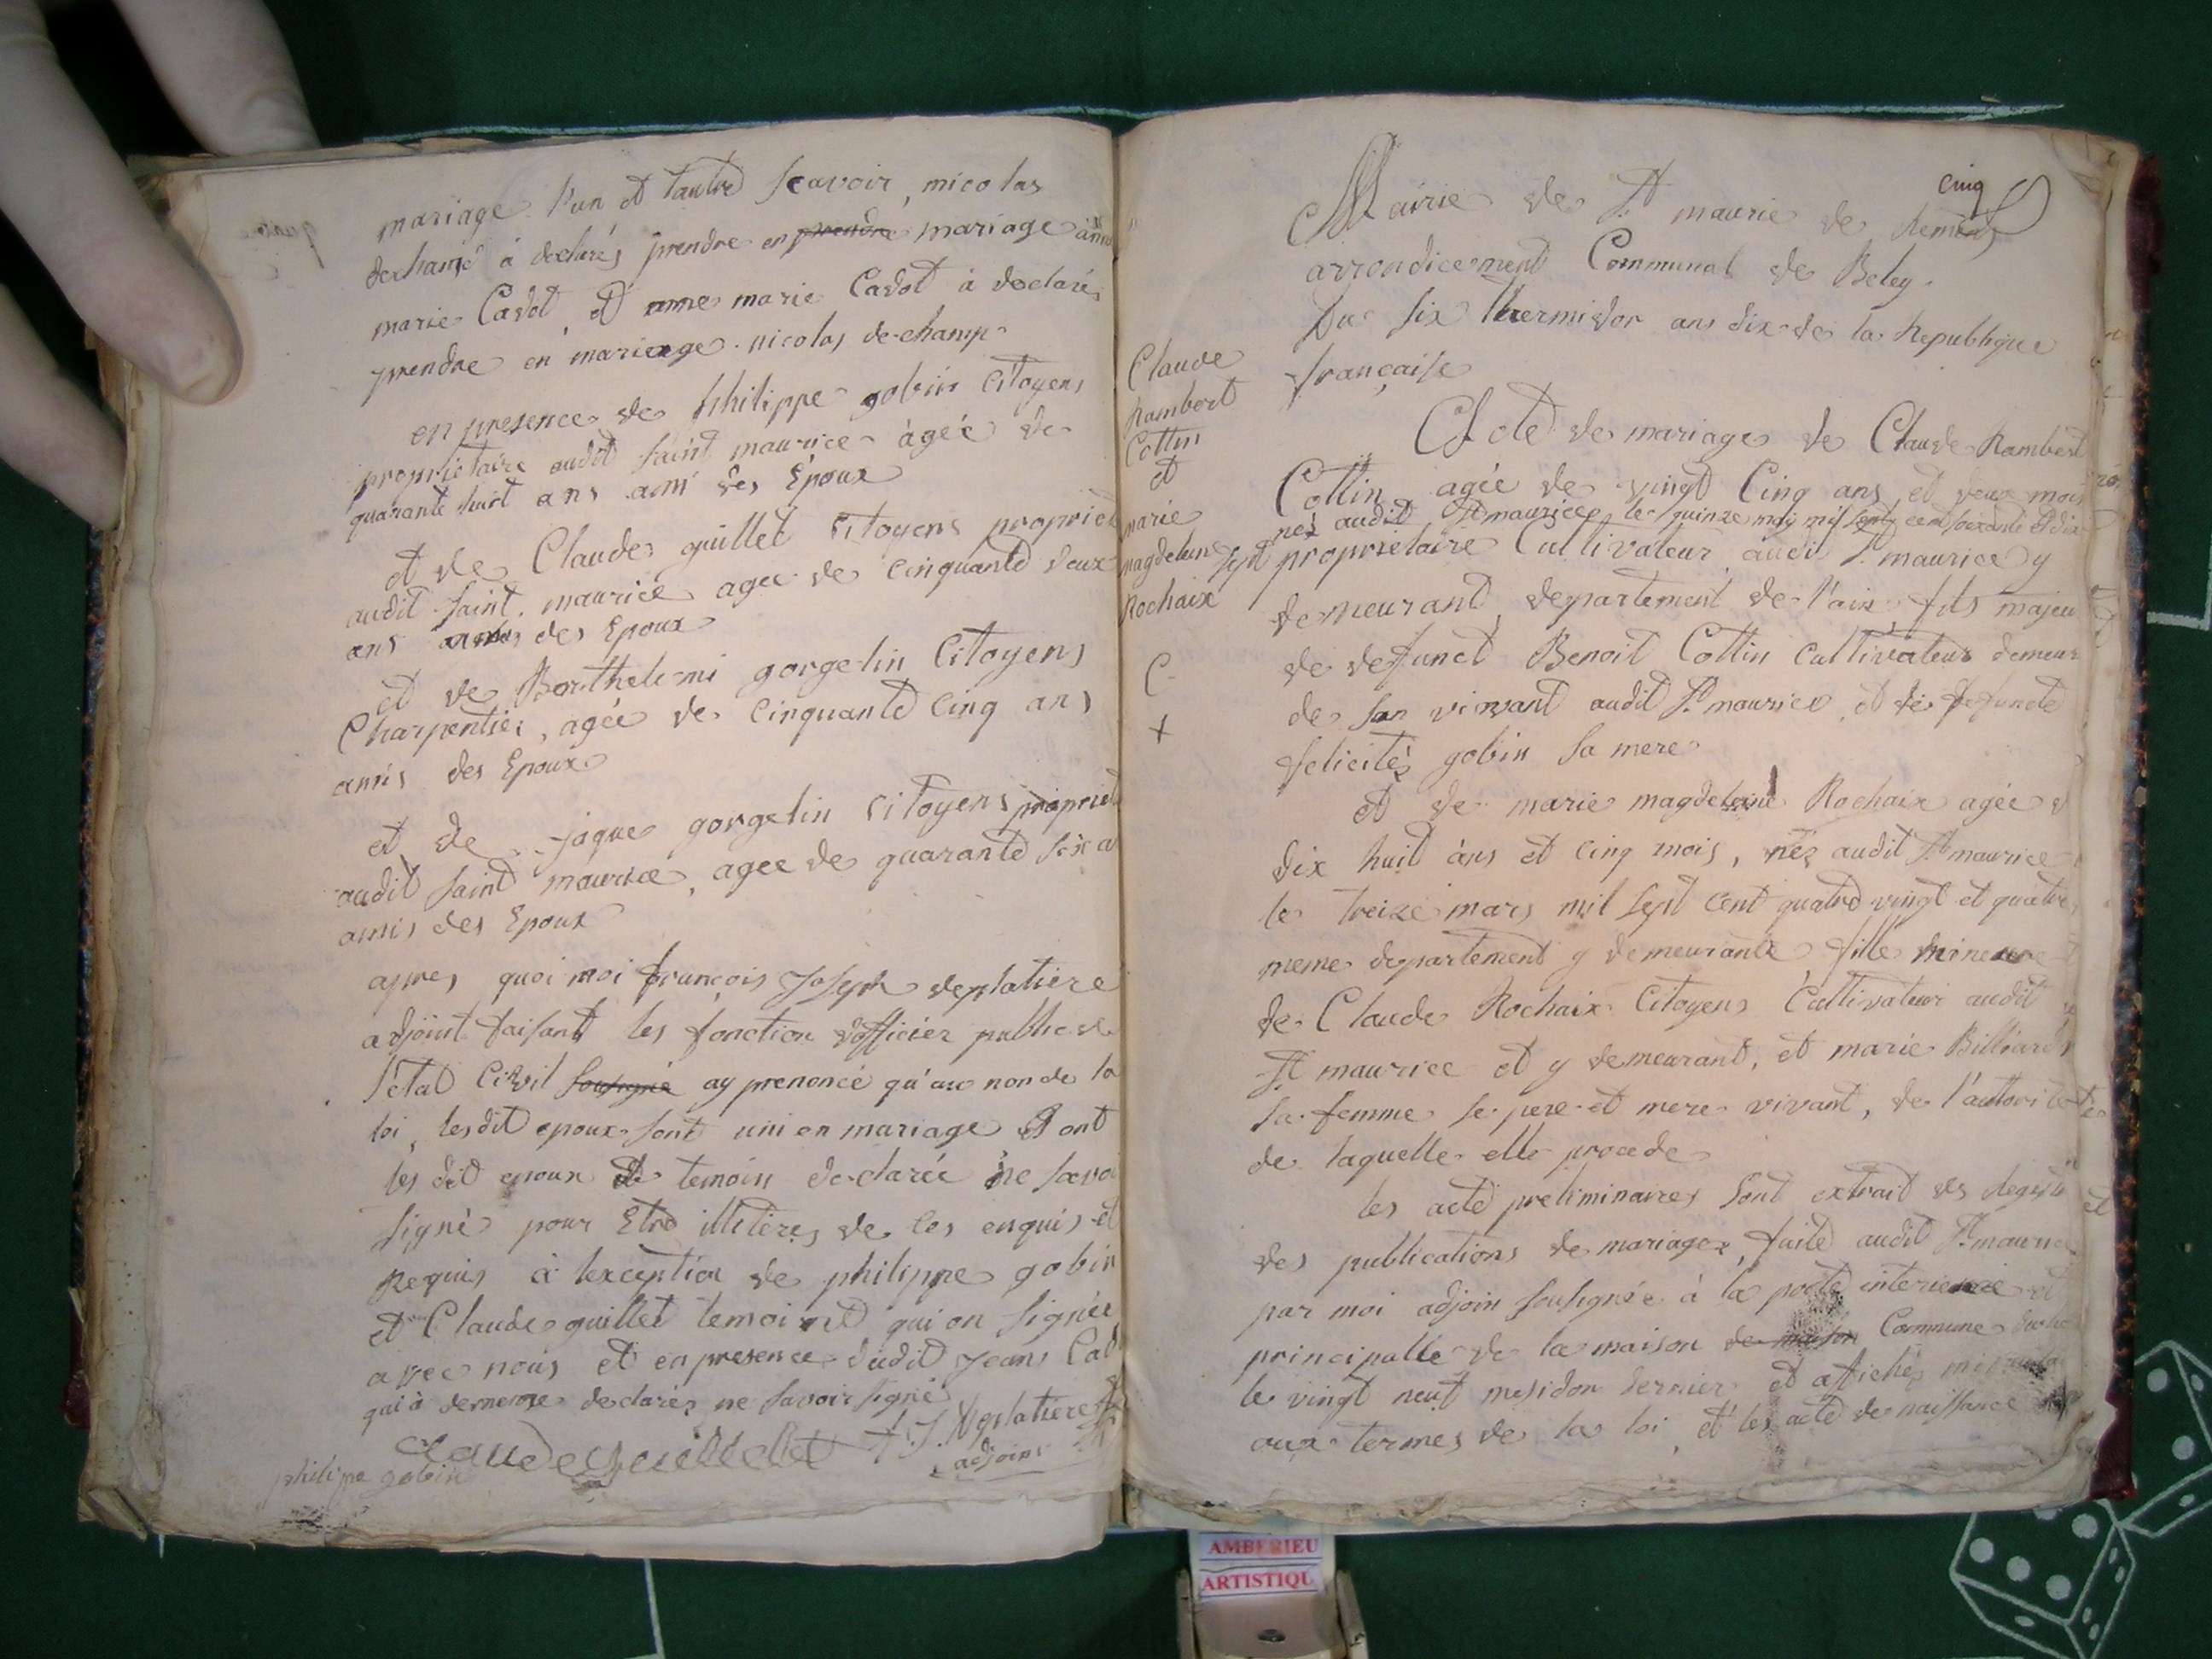 mariage l'un et lautre scavoir, nicolas
dechamp à declarés prendre en prendre mariage anne
marie Cadot, et anne marie Cadot à declarés
prendre en mariage nicolas dechamp
en presence de philippe gobin Citoyens
proprietaire audit saint maurice àgée de
quarante huit ans ami des Epoux
et de Claude guillet Citoyens propriet
audit saint maurice agee de Cinquante deux
ans amis des Epoux
et de Barthelemi gorgelin Citoyens
Charpentier, agée de Cinquante Cinq ans
amis des Epoux
et de jaque gorgelin Citoyens propriet
audit saint maurice, agee de quarante six a
amis des Epoux
apres quoi moi françois Joseph deplatiere
adjoint faisant les fonction d'officier public de
l'etat Civil sousigné ay prenoncé qu'au nom de la
loi, lesdit epoux sont uni en mariage Et ont
les dit epoux et temoin declarée ne savo
signé pour Etre illiteres de les enquis et
Requis à lexception de philippe gobin
et Claude guillet temoint qui on signée
avec nous et en presence dudit Jean Cad
qui à dememe declarés ne savoir signé
Claude Guillellet F. J. Deplatiere
philipe gobin adjoint
cinq
Mairie de St. maurie de Remens
arrondicement Communal de Beley.
Du six thermidor ans dix de la Republique
française
Claude
Rambert
Cottin
et
marie
magdelene
Rochaix
C
+
Acte de mariage de Claude Rambert
Cottin agée de vingt Cinq ans et deux mois
nés audit St maurice le quinze may mil sept cent soixante et dix
sept proprietaire Cultivateur audit St. maurice y
demeurant departement de l'ain fils majeu
de defunct Benoit Cottin Cultivateur demeur
de son vivant audit St maurice et de defuncte
felicités gobin sa mere
et de marie magdeleine Rochaix agée d
dix huit àns et Cinq mois, nés audit St maurice
le treize mars mil sept Cent quatre vingt et quatre
meme departement y demeurante fille mineure
de Claude Rochaix Citoyens Cultivateur audit
St maurice et y demeurant, et marie Billiard
sa femme se pere et mere vivant, de l'autorite
de laquelle elle procede
les acte preliminaires sont extrait des Regist
des publications de mariages, faite audit St. mauric
par moi adjoin sousignée à la porte interieure et
principalle de la maison de maison Commune
le vingt neuf mesidor dernier et affiché
aux termes de la loi, et les acte de naissance
AMBERIEU
ARTISTIQU